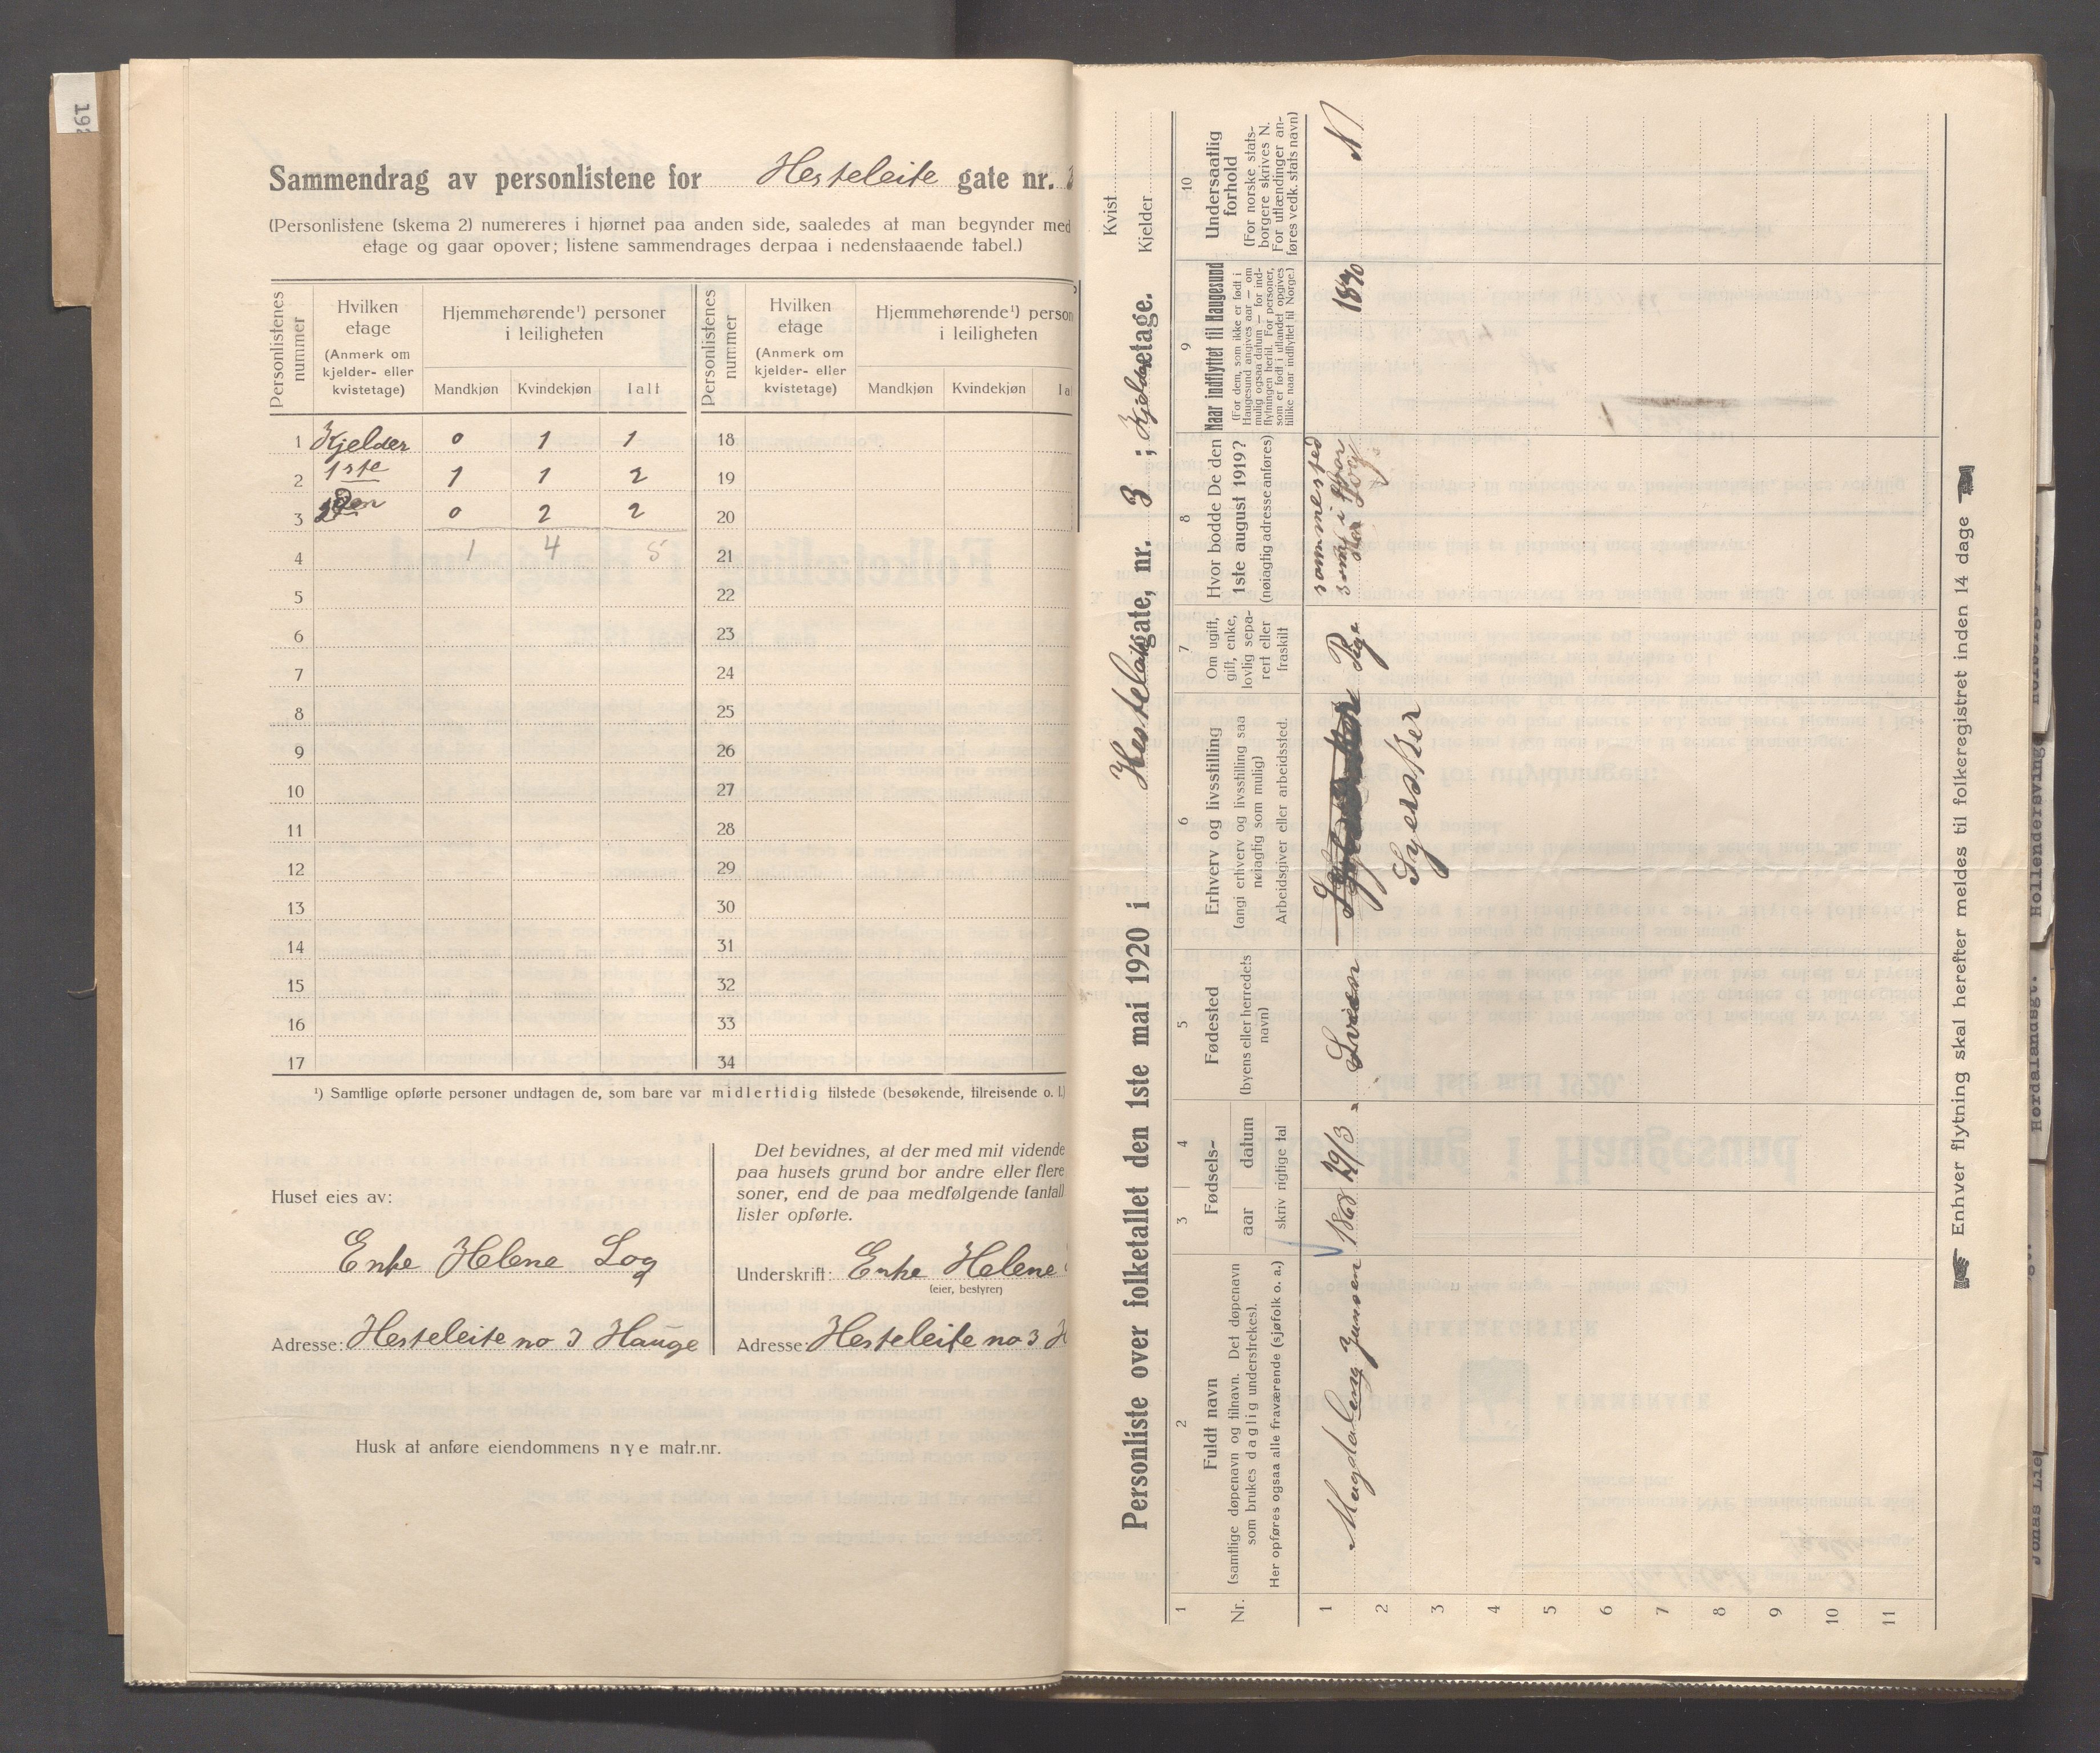 192
Sammendrag av personlistene for Hesteleite gate nr. 3
(Personlistene (skema 2) numereres i hjørnet paa anden side, saaledes at man begynder med
etage og gaar opover; listene sammendrages derpaa i nedenstaaende tabel.)
Personlistenes nummer
Hvilken etage (Anmerk om kjelder- eller kvistetage)
Hjemmehørende¹) personer i leiligheten
Mandkjøn Kvindekjøn Ialt
Personlistenes nummer
Hvilken etage (Anmerk om kjelder- eller kvistetage)
Hjemmehørende¹) person
i leiligheten
Mandkjøn Kvindekjøn Ial
1 Kjelder 0 1 1 18
2 1ste 1 1 2 19
3 2den 0 2 2 20
4 1 4 5 21
5 22
6 23
7 24
8 25
9 26
10 27
11 28
12 29
13 30
14 31
15 32
16 33
17 34
¹) Samtlige opførte personer undtagen de, som bare var midlertidig tilstede (besøkende, tilreisende o. l.)
Huset eies av:
Enke Helene Log
Adresse: Hesteleite no 3 Hauge
Det bevidnes, at der med mit vidende
paa husets grund bor andre eller flere
soner, end de paa medfølgende (antall
lister opførte.
Underskrift: Enke Helene
(eier, bestyrer)
Adresse: Hesteleite no 3 H
Husk at anføre eiendommens nye matr.nr.
Kvist
Personliste over folketallet den 1ste mai 1920 i Hesteleitegate, nr. 3 ; Kjelderetage. Kjelder
1 2 3 4 5 6 7 8 9 10
Nr.
Fuldt navn
(samtlige døpenavn og tilnavn. Det døpenavn
som brukes daglig understrekes).
Her opføres ogsaa alle fraværende (sjøfolk o. a.)
Fødsels-
aar datum
skriv rigtige tal
Fødested
(byens eller herredets
navn)
Erhverv og livsstilling
(angi erhverv og livsstilling saa
nøiagtig som mulig)
Arbeidsgiver eller arbeidssted.
Om ugift,
gift, enke,
lovlig sepa-
rert eller
fraskilt
Hvor bodde De den
1ste august 1919?
(nøiagtig adresse anføres)
Naar indflyttet til Haugesund
(For dem, som ikke er født i
Haugesund angives aar — om
mulig ogsaa datum — for ind-
flytningen hertil. For personer,
som er født i utlandet opgives
tillike naar indflyttet til Norge.)
Undersaatlig
forhold
(For norske stats-
borgere skrives N.
For utlændinger an-
føres vedk. stats navn)
1 Magdalena Jansen 1868 29/3 Sveen Syersker Pige sammested som i Aar 1890 N
2
3
4
5
6
7
8
9
10
11
Enhver flytning skal herefter meldes til folkeregistret inden 14 dage
Hollendersving
Hordalandsgt.
Jonas Lie